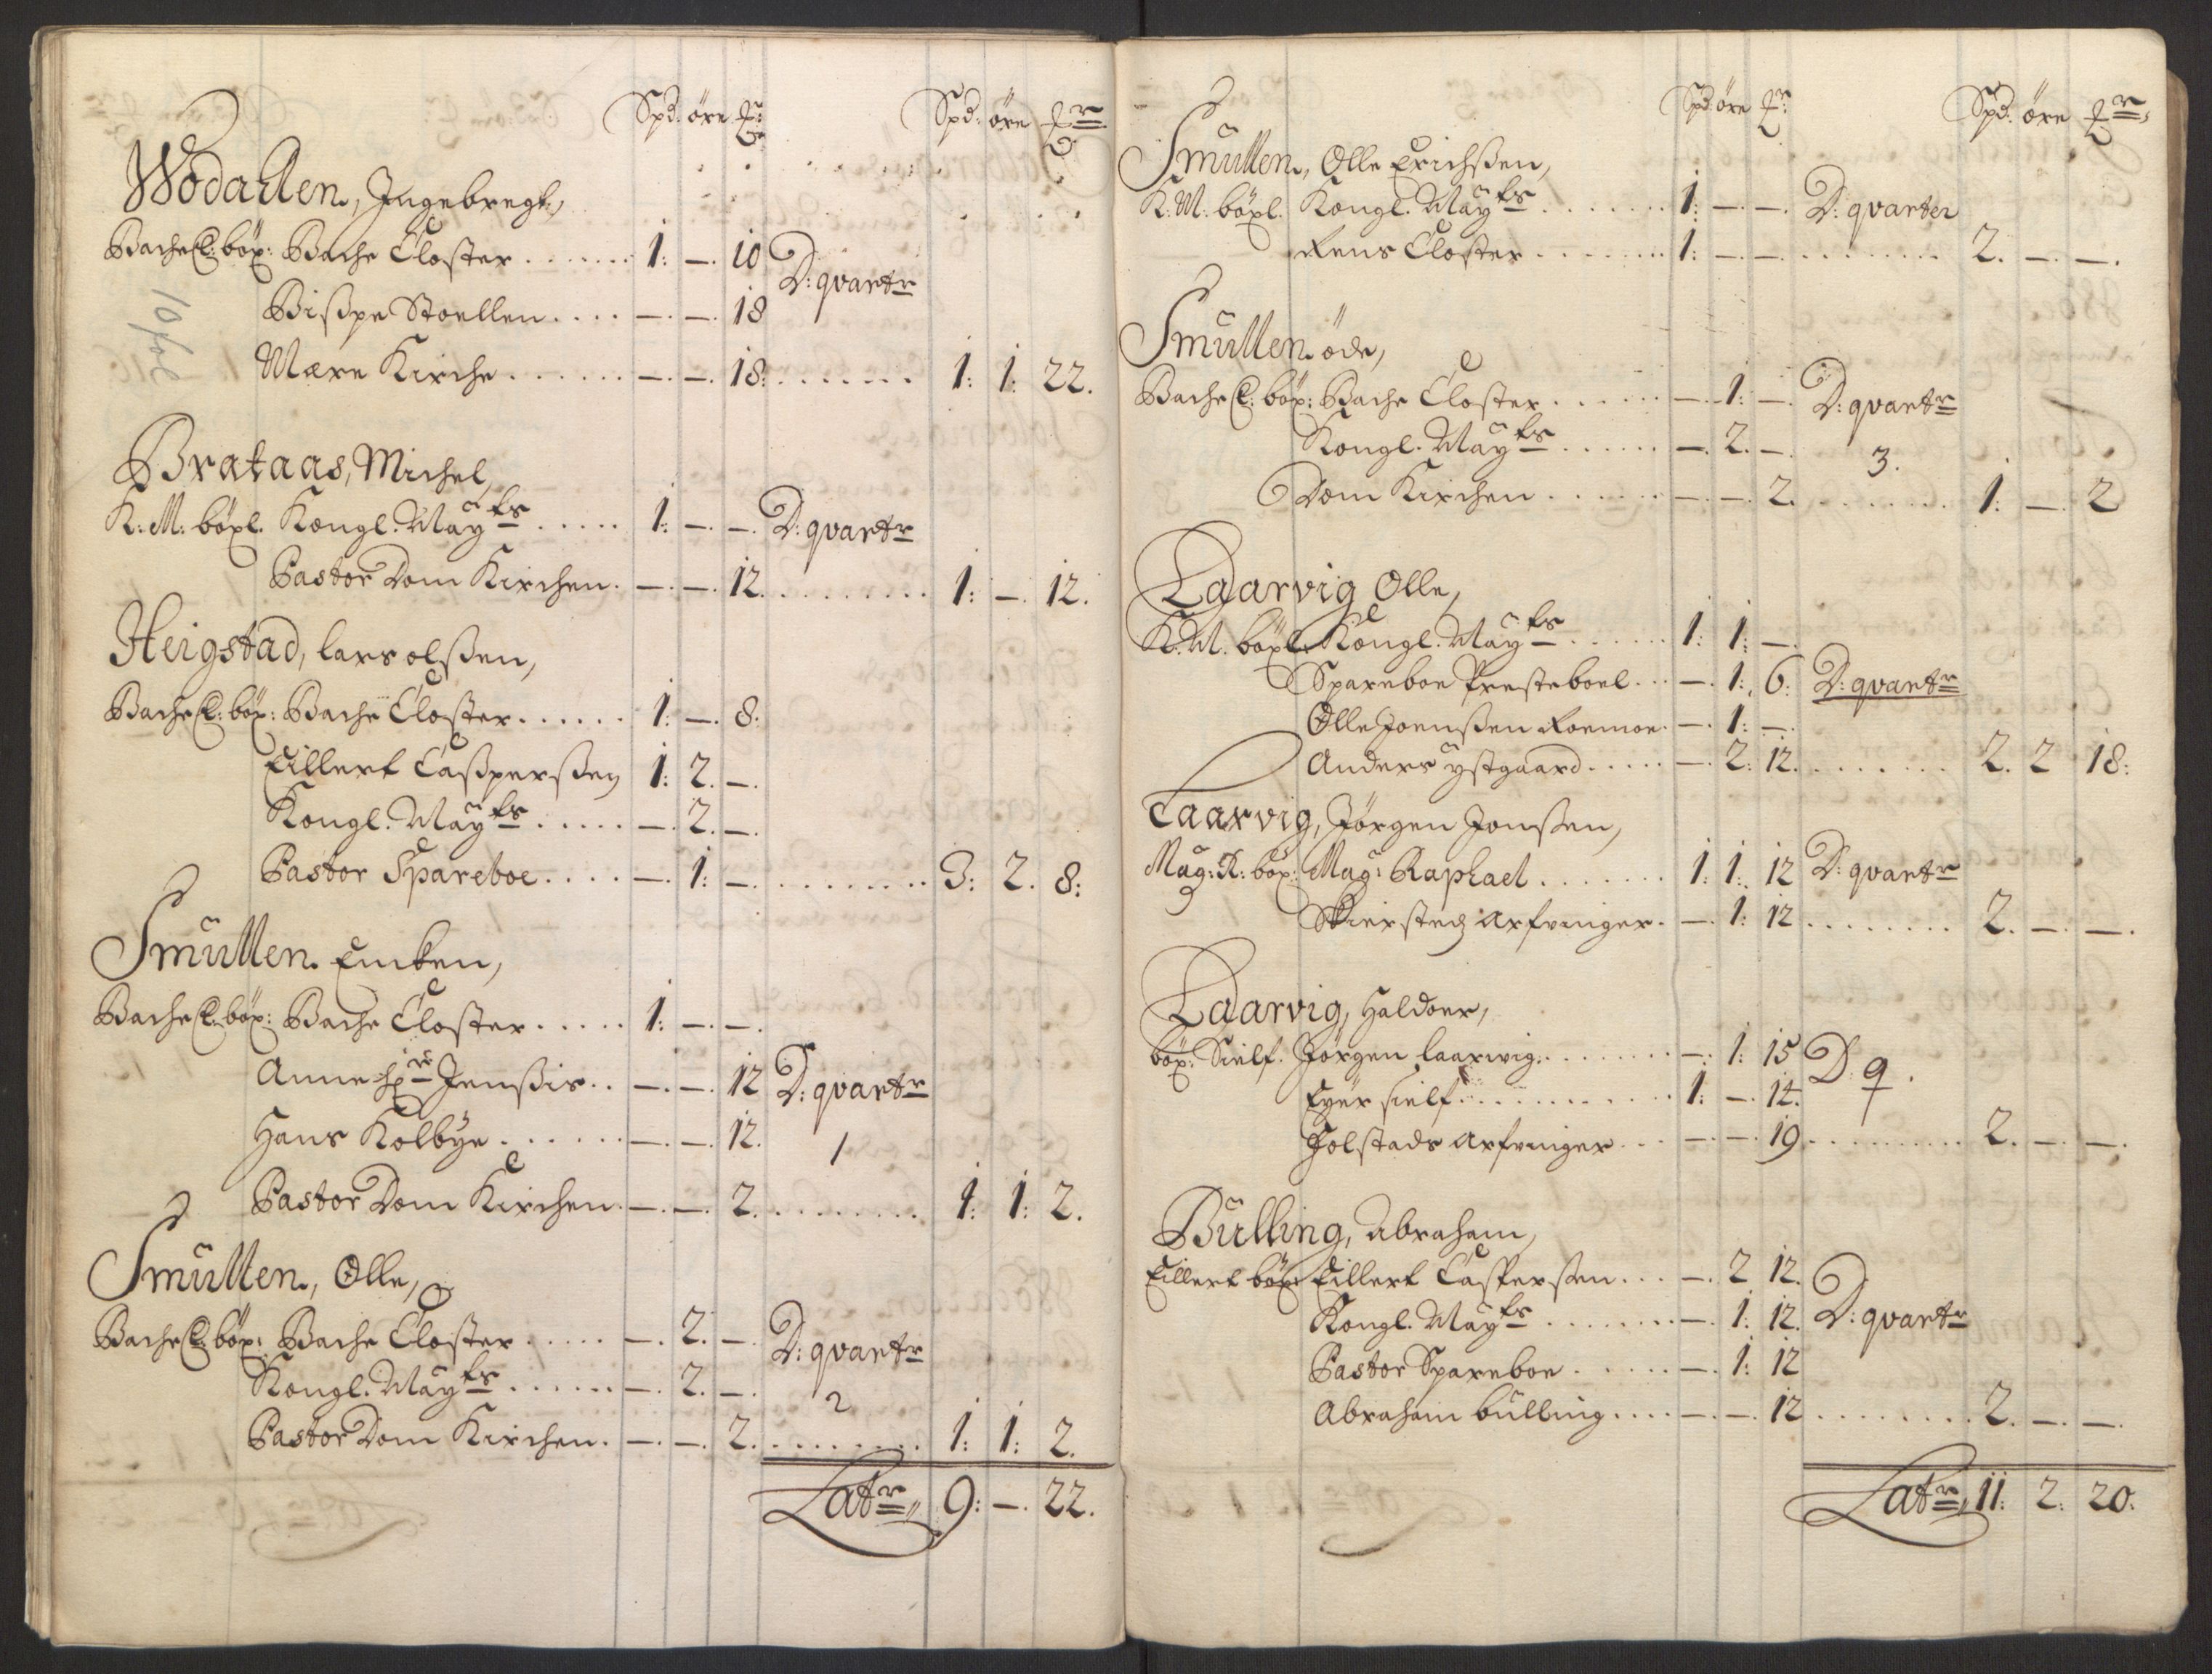 Spd: öre
Spd: öre
Wodahlen, Ingebregt,
Bache Cl: böx: Bache Closter ....... 1: —. 10
D: qvartr
Bißpe Stoellen .... —. —. 18
Mære Kirche ...... —. —. 18: ....... 1: 1: 22.
Brataas, Michel,
K: M: böxl. Kongl. Mayts ..... 1: —. —. D: qvartr
Pastor Dom Kirchen. —. —. 12. ......... 1: —. 12.
Heigstad, lars olßen,
Bache Cl: böx: Bache Closter ...... 1: —. 8.
Eillert Caßperßen 1: 2. —.
Kongl. Mayts ..... —. 2. —.
Pastor Spareboe .... —. 1: —. ........ 3: 2. 8:
Smullen. Encken,
Bache Cl: böx: Bache Closter ..... 1: —. —.
Anne Jenßis .. —. —. 12 D: qvartr
Hans Kolbye ...... —. —. 12. 1
Pastor Dom Kirchen. —. —. 2. ........ 1: 1: 2.
Smullen., Olle,
Bache Cl: böx: Bache Closter ..... —. 2. —. D: qvartr
Kongl. Mayts ...... —. 2. —. 2
Pastor Dom Kirchen. —. —. 2. ........ 1: 1: 2.
Latr 9: —. 22.
Spd: öre
Spd: öre
Smullen., Olle Erichßen,
K: M: böxl. Kongl. Mayts ....... 1: —. —. D: qvarter
Rens Closter ....... 1: —. —. ........ 2. —. —.
Smullen öde,
Bache Cl: böx: Bache Closter ...... —. 1: —. D: qvartr
Kongl. Mayts ..... —. 2. —. 3.
Dom Kirchen ...... —. —. 2. ....... 1: —. 2
Laarvig Olle,
K. M. böxl. Kongl. Mayts ...... 1: 1: —.
Spareboe Presteboel ... —. 1: 6: D: qvartr
Olle Joenßen Roemoe. —. 1: —.
Anders ystgaard ..... —. 2: 12. ....... 2. 2 18:
Laarvig, Jörgen Jonßen,
Mag: R: böx: Mag: Raphael ....... 1: 1: 12 D: qvartr
Skiersted Arfvinger. —. 1: 12 ........ 2. —. —.
Laarvig, Haldoer,
böx: Sielf. Jörgen laarwig ........ —: 1: 15 D: q.
Eyer sielf ............ 1: —. 14.
Holstads Arfvinger ... —. —. 19 ......... 2. —. —.
Bulling, Abraham,
Eillert böx: Eillert Casperßen ... —. 2 12.
Kongl. Mayts ........ —. 1: 12. D: qvartr
Pastor Spareboe ..... —. 1: 12
Abraham bulling .... —. —. 12 ........ 2. —. —.
Latr 11: 2: 20.